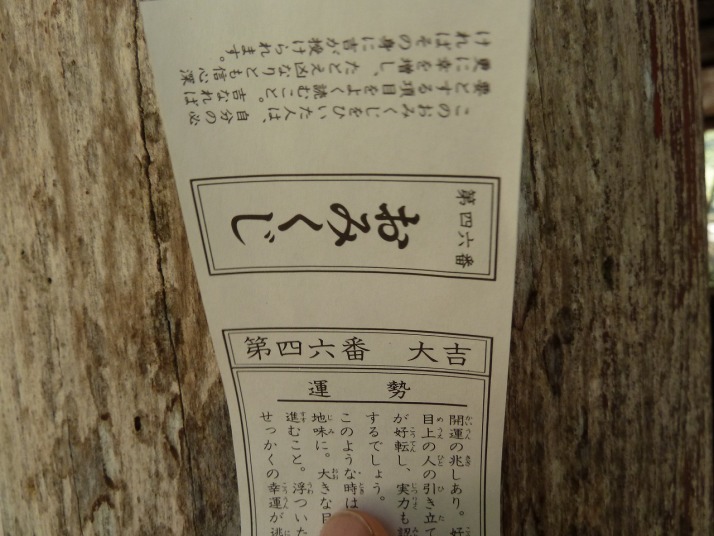 このおみくじをひいた人は、自分の必
要とする項目をよく読むこと。吉なれば
更に幸を増し、たとえ凶なりとも信心深
ければその身に吉が授けられます。
第四六番
おみくじ
第四六番 大吉
運勢
開運の兆しあり。
目上の人の引き立て
が好転し、実力も認
するでしょう。
このような時は
地味に。大きな目
進むこと。浮ついた
せっかくの幸運が逃